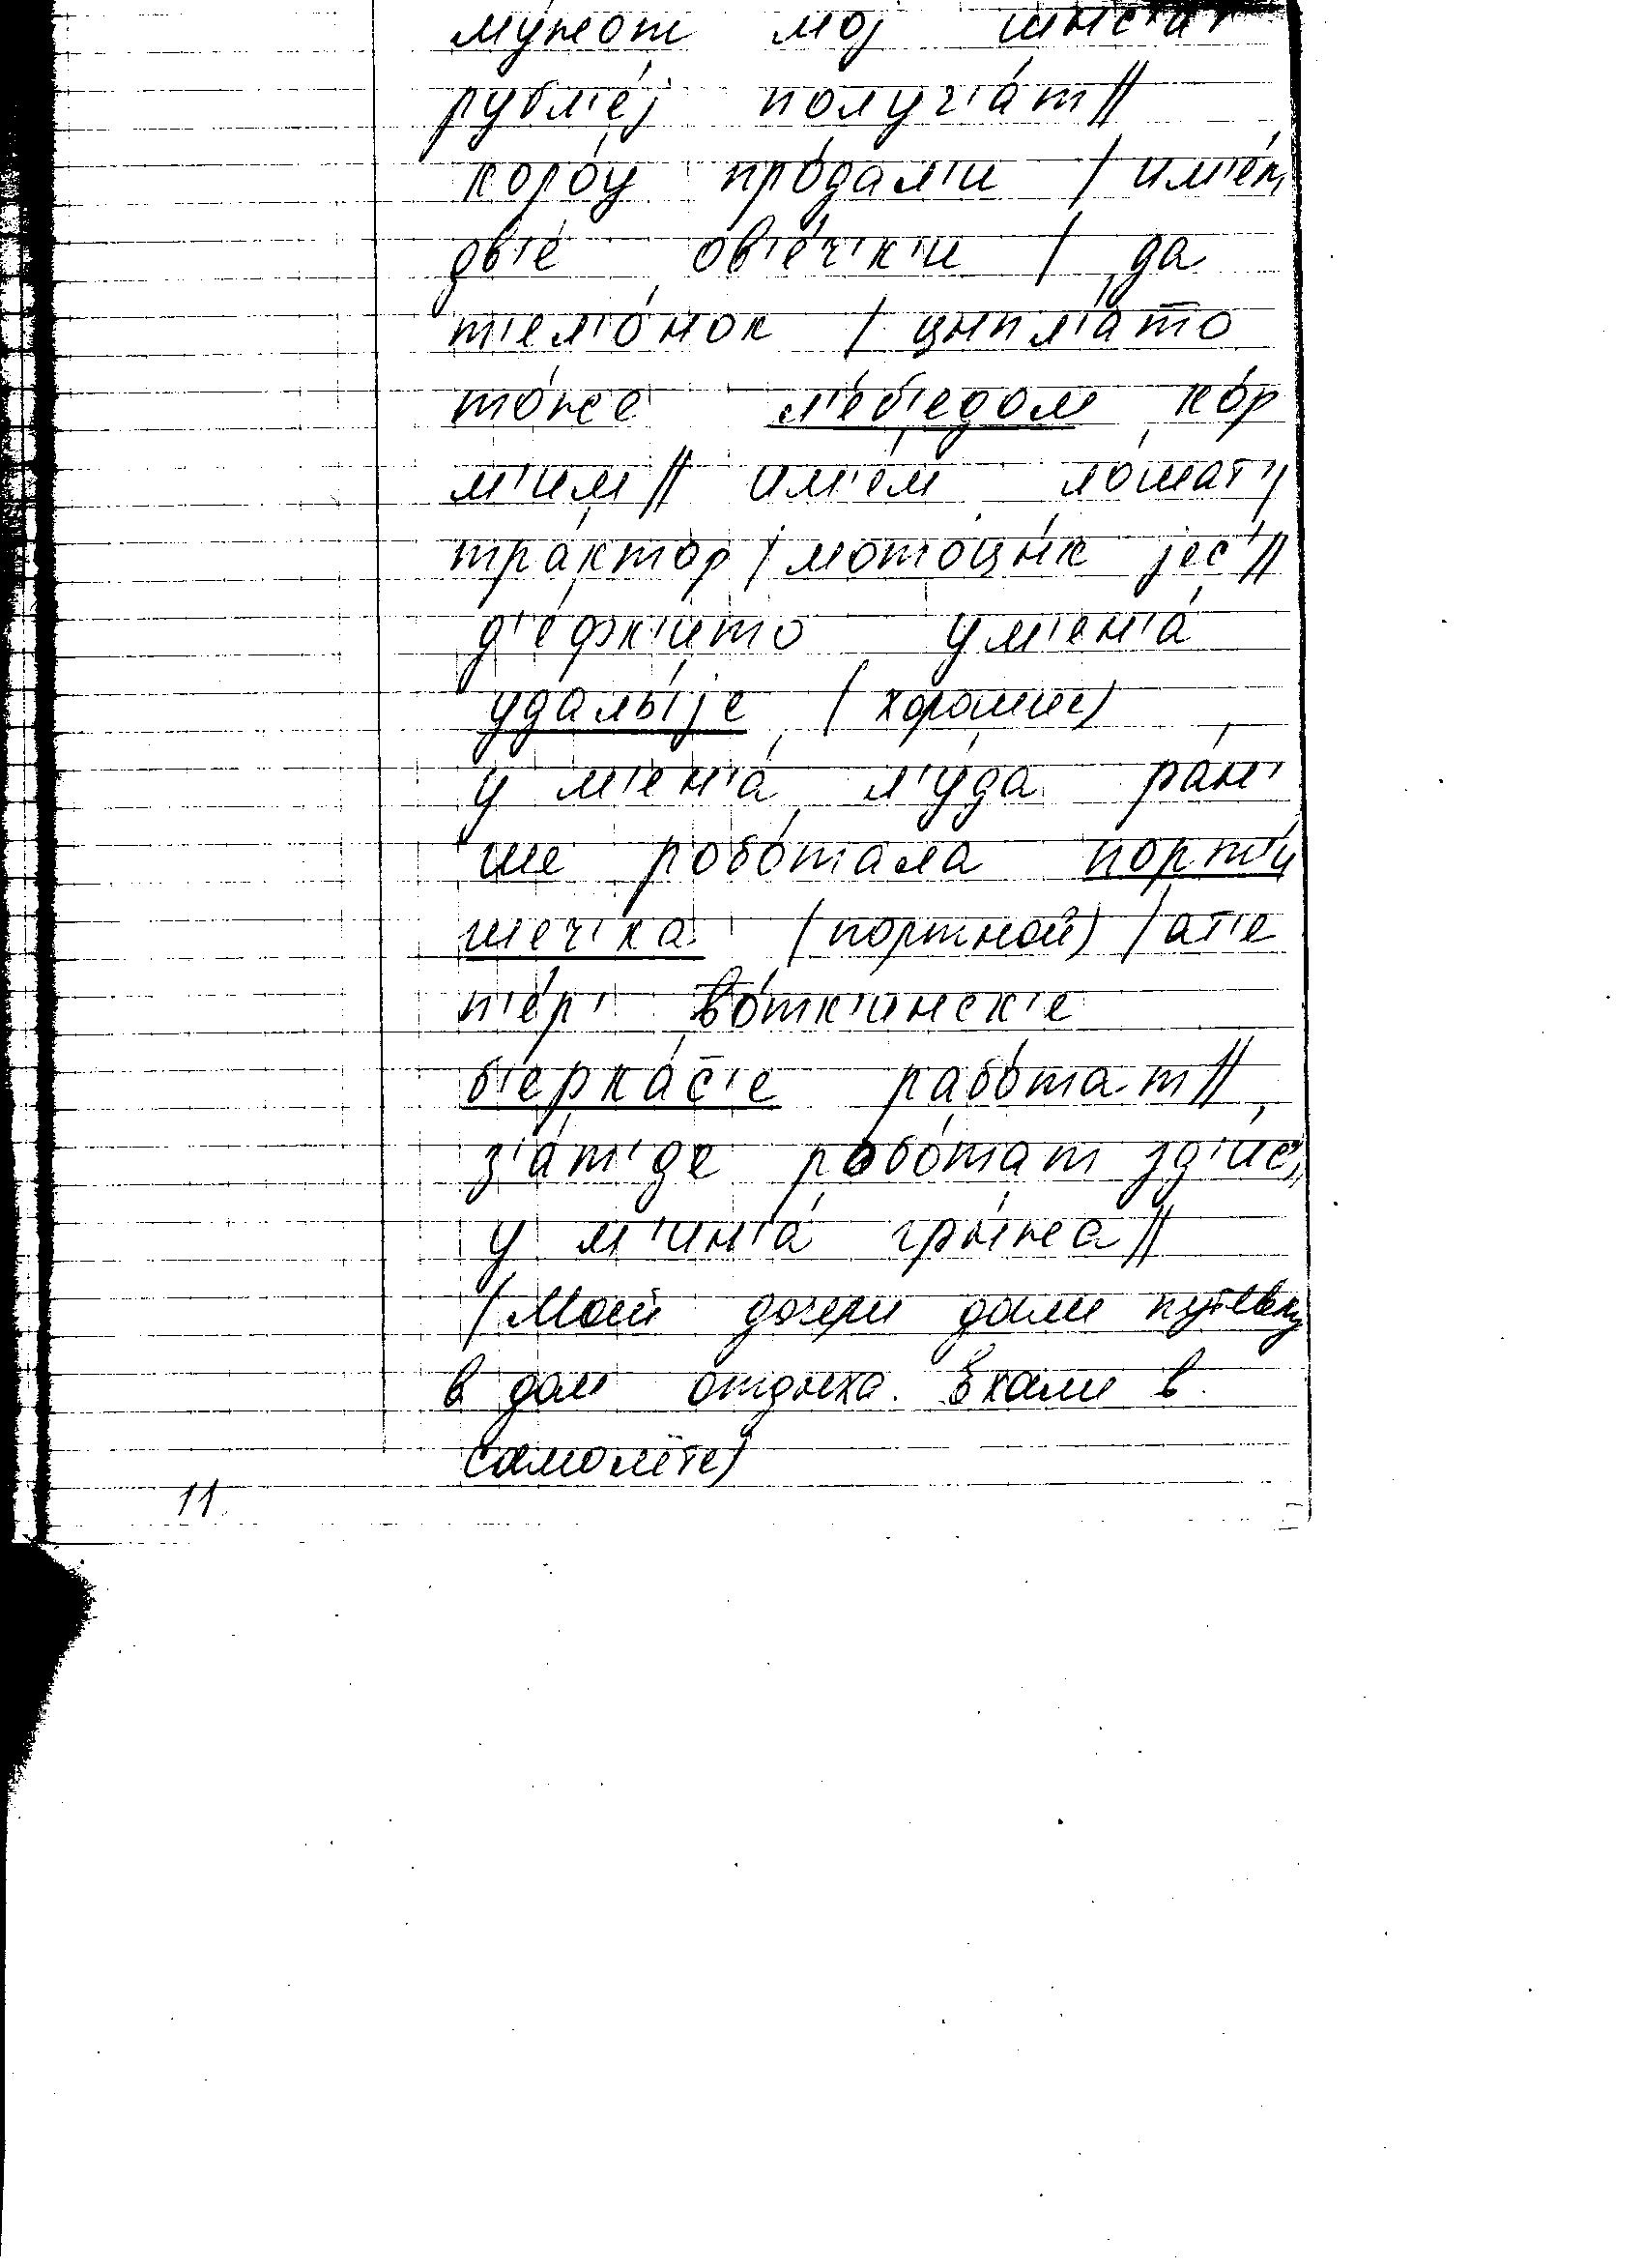 му́жот мој
рубл'е́j получ'а́т//
коро́у про́дал'и / им'е́м
дв'е́ ов'е́ч'к'и / да
т'ел'о́нок / цыпл'а́то
то́же л'е́б'едом ко́р
м'им// им'е́м ло́шат'/
тра́ктор / мотоцы́к jес'//
д'е́фк'ито ум'ен'а́
удалы́jе (хорошие)
у м'ен'а́ л'у́да ра́н'
ше робо́тала порт'и́
шеч'ка (портной) / ат'е
п'е́р' во́тк'инск'е
б'ерка́с'е рабо́тат//
з'а́т'де робо́тат зд'ис'//
у м'ин'а́ гры́жа//
(Моей дочери дали путёвку
в дом отдыха. Ехали в
самолёте)
11